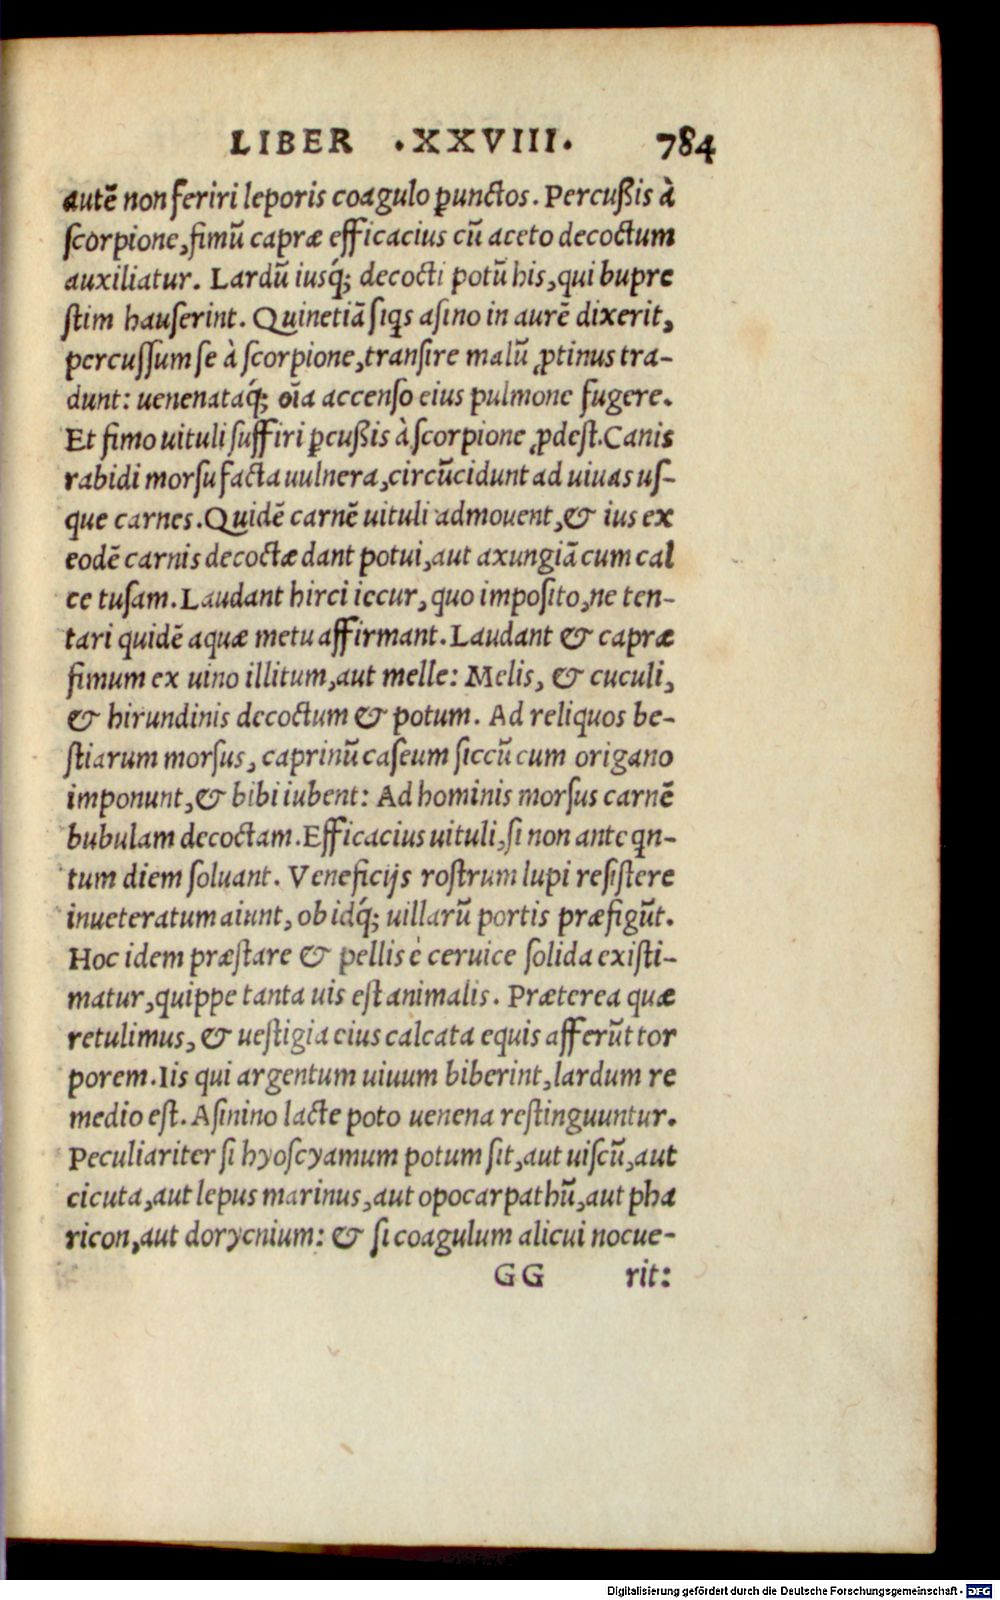 LIBER .XXVIII. 784
autē non feriri leporis coagulo ꝑunctos. Percußis à
ſcorpione, fimū capræ efficacius cū aceto decoctum
auxiliatur. Lardū iusq́; decocti potū his, qui bupre
ſtim hauſerint. Quinetiā ſiqs aſino in aurē dixerit,
percuſſum ſe à ſcorpione, tranſire malū ꝓtinus tra-
dunt: uenenataq́; oīa accenſo eius pulmone fugere.
Et fimo uituli ſuffiri ꝑcußis à ſcorpione ꝓdeſt. Canis
rabidi morſu facta uulnera, circūcidunt ad uiuas uſ-
que carnes. Quidē carnē uituli admouent, & ius ex
eodē carnis decoctæ dant potui, aut axungiā cum cal
ce tuſam. Laudant hirci iecur, quo impoſito, ne ten-
tari quidē aquæ metu affirmant. Laudant & capræ
fimum ex uino illitum, aut melle: Melis, & cuculi,
& hirundinis decoctum & potum. Ad reliquos be-
ſtiarum morſus, caprinū caſeum ſiccū cum origano
imponunt, & bibi iubent: Ad hominis morſus carnē
bubulam decoctam. Efficacius uituli, ſi non ante qn-
tum diem ſoluant. Veneficijs roſtrum lupi reſiſtere
inueteratum aiunt, ob idq́; uillarū portis præfigūt.
Hoc idem præſtare & pellis è ceruice ſolida exiſti-
matur, quippe tanta uis eſt animalis. Præterea quæ
retulimus, & ueſtigia eius calcata equis afferūt tor
porem. Iis qui argentum uiuum biberint, lardum re
medio eſt. Aſinino lacte poto uenena reſtinguuntur.
Peculiariter ſi hyoſcyamum potum ſit, aut uiſcū, aut
cicuta, aut lepus marinus, aut opocarpathū, aut pha
ricon, aut dorycnium: & ſi coagulum alicui nocue-
GG rit:
Digitalisierung gefördert durch die Deutsche Forschungsgemeinschaft - DFG